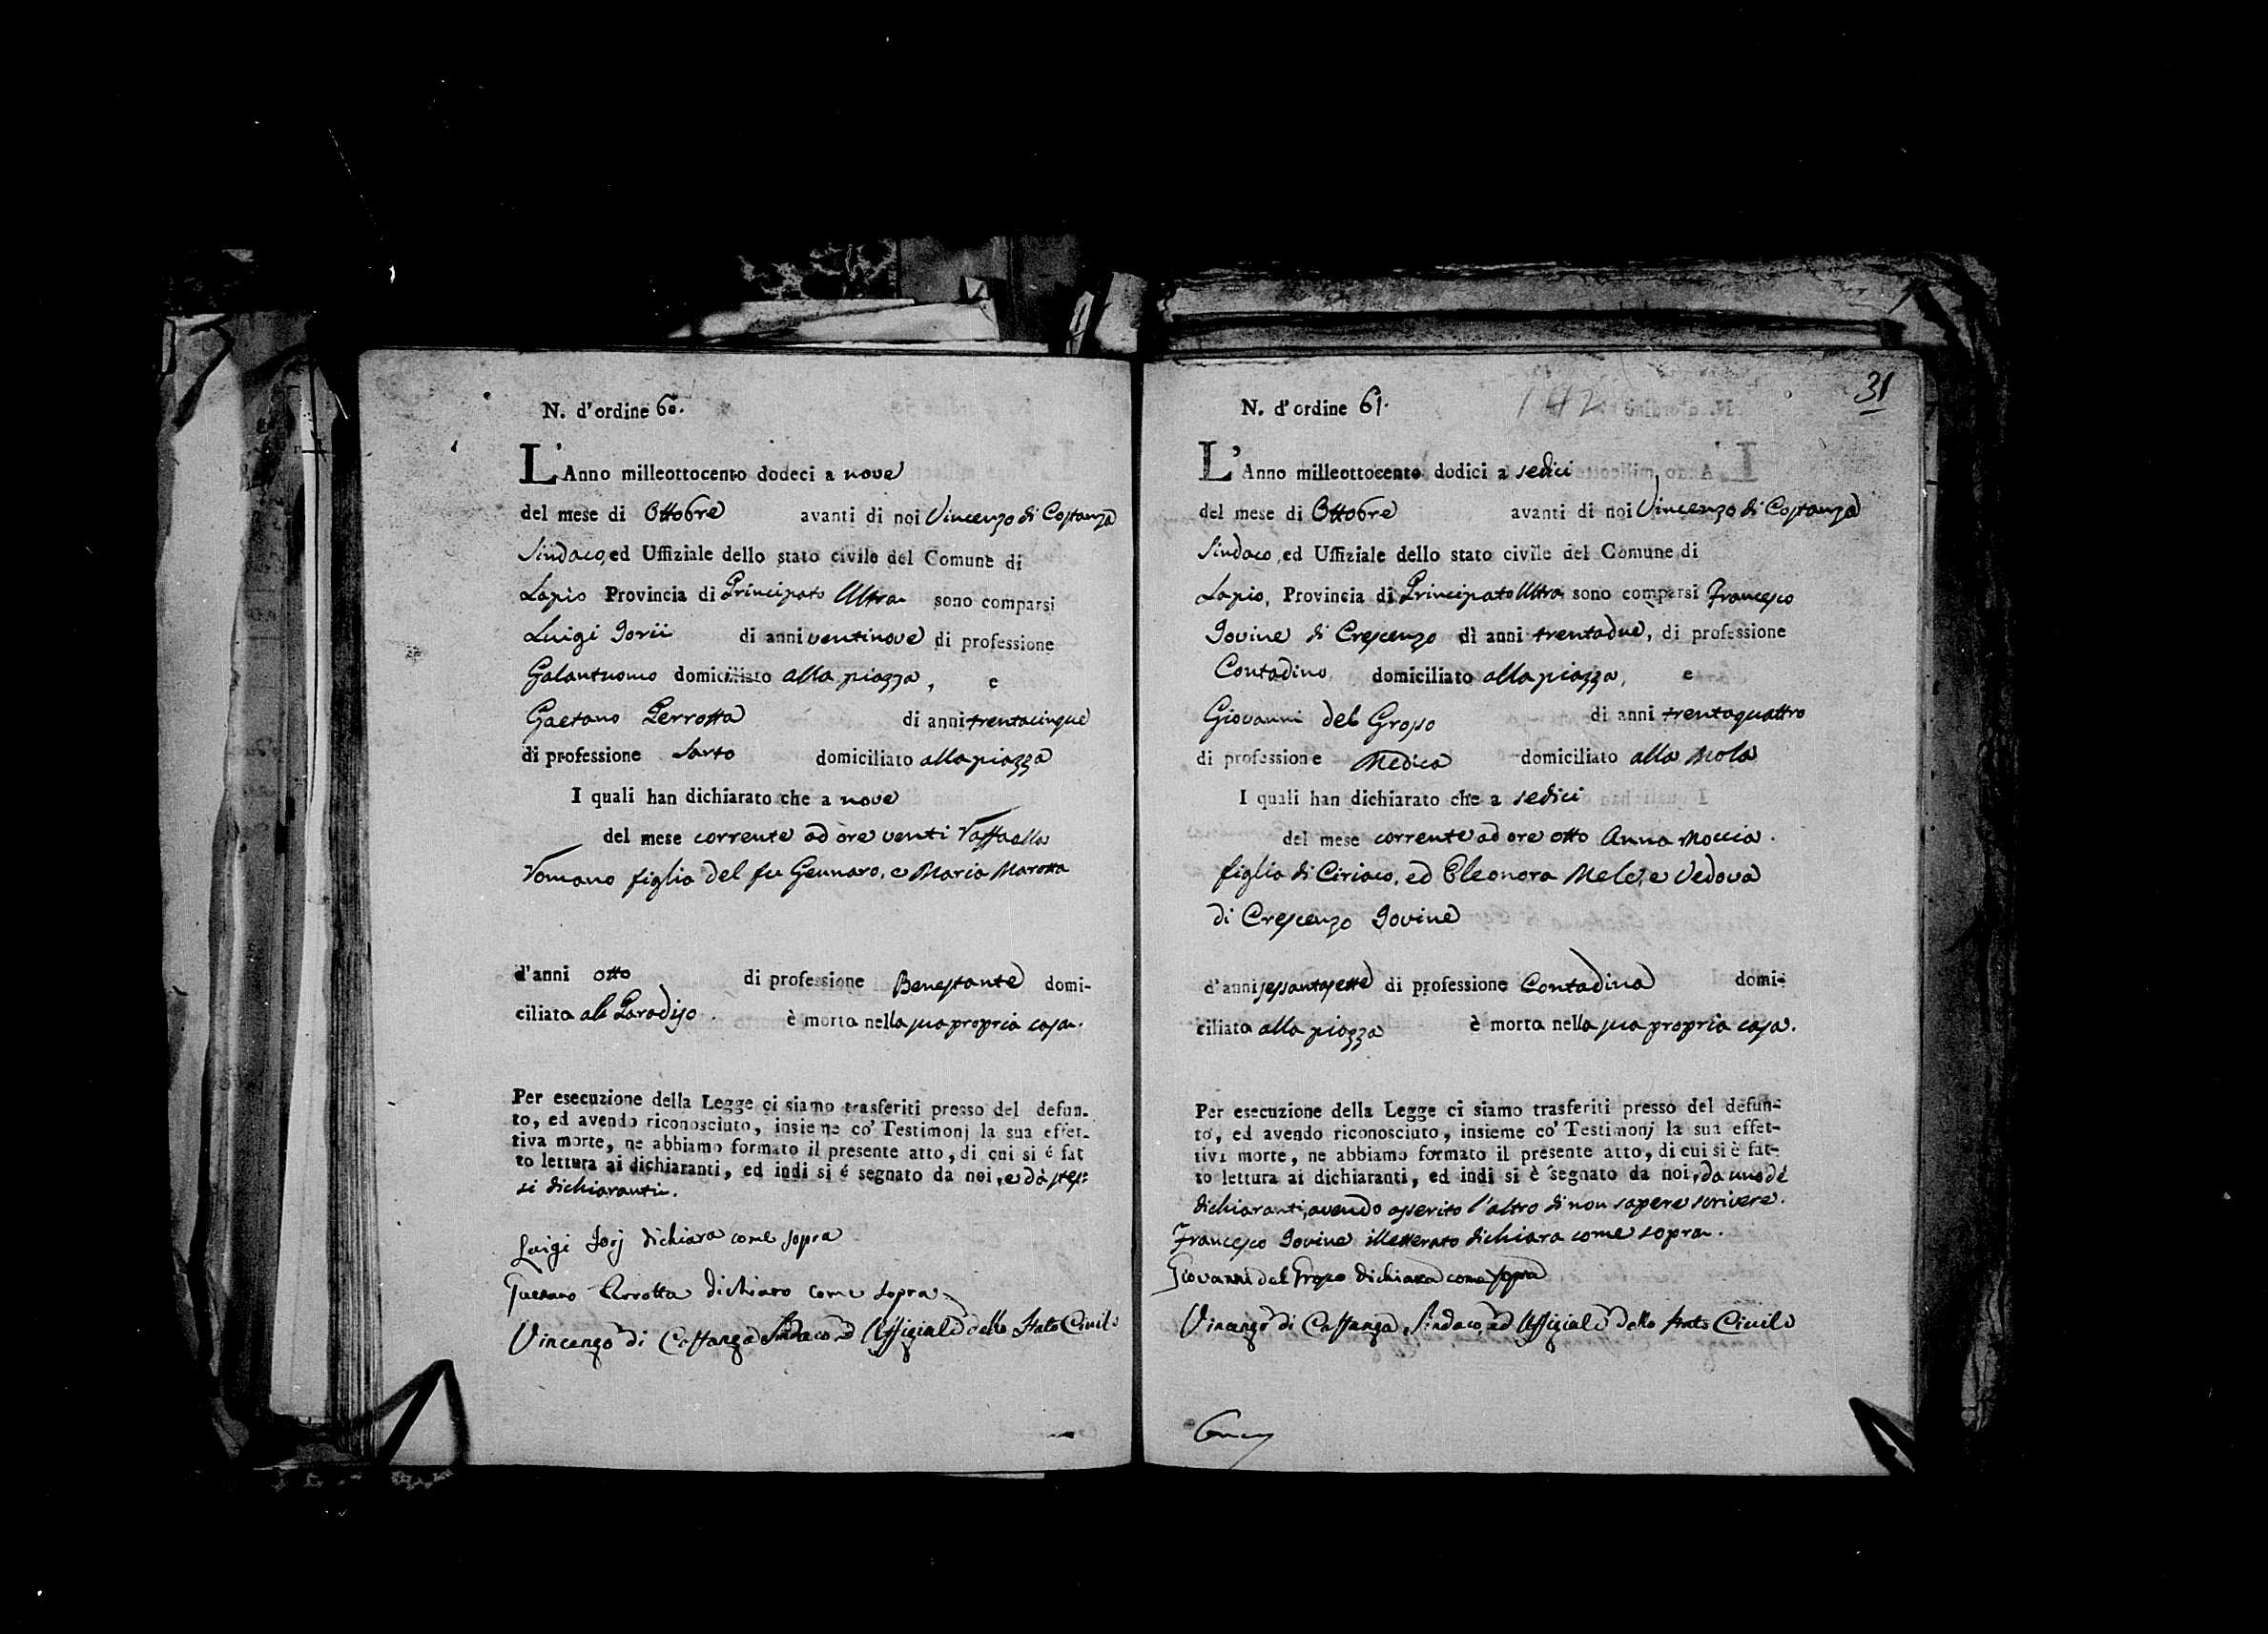 N. d'ordine 60.
L'Anno milleottocento dodeci a nove
del mese di Ottobre avanti di noi Vincenzo di Costanza
Sindaco, ed Uffiziale dello stato civile del Comune di
Lapio Provincia di Principato Ultra sono comparsi
Luigi Jorii di anni ventinove di professione
Galantuomo domiciliato alla piazza, e
Gaetano Perrotta di anni trentacinque
di professione Sarto domiciliato alla piazza
I quali han dichiarato che a nove
del mese corrente ad ore venti Raffaella
Romano figlia del fu Gennaro, e Maria Marotta
d'anni otto di professione Benestante domi-
ciliata al Paradiso. è morta nella sua propria casa.
Per esecuzione della Legge ci siamo trasferiti presso del defun-
to, ed avendo riconosciuto, insieme co' Testimonj la sua effet-
tiva morte, ne abbiamo formato il presente atto, di cui si é fat
to lettura ai dichiaranti, ed indi si é segnato da noi, e dà stes=
si dichiaranti.
Luigi Jorj dichiara come sopra
Gaetano Perrotta dichiaro come sopra
Vincenzo di Costanza Sindaco, ed Uffiziale dello Stato Civile
31
N. d'ordine 61.
142
L'Anno milleottocento dodici a sedici
del mese di Ottobre avanti di noi Vincenzo di Costanza
Sindaco, ed Uffiziale dello stato civile del Comune di
Lapio, Provincia di Principato Ultra sono comparsi Francesco
Jovine di Crescenzo di anni trentadue, di professione
Contadino domiciliato alla piazza, e
Giovanni del Grosso di anni trentaquattro
di professione Medico domiciliato alla Mola
I quali han dichiarato che a sedici
del mese corrente ad ore otto Anna Moccia
figlia di Ciriaco, ed Eleonora Mele, e Vedova
di Crescenzo Jovine
d'anni sessantasette di professione Contadina domi-
ciliata alla piazza è morta nella sua propria casa.
Per esecuzione della Legge ci siamo trasferiti presso del defun-
to, ed avendo riconosciuto, insieme co' Testimonj la sua effet-
tiva morte, ne abbiamo formato il presente atto, di cui si è fat-
to lettura ai dichiaranti, ed indi si è segnato da noi, da uno dè
dichiaranti, avendo asserito l'altro di non sapere scrivere.
Francesco Jovine illetterato dichiara come sopra.
Giovanni del Grosso dichiara come sopra
Vincenzo di Costanza, Sindaco, ed Uffiziale dello Stato Civile